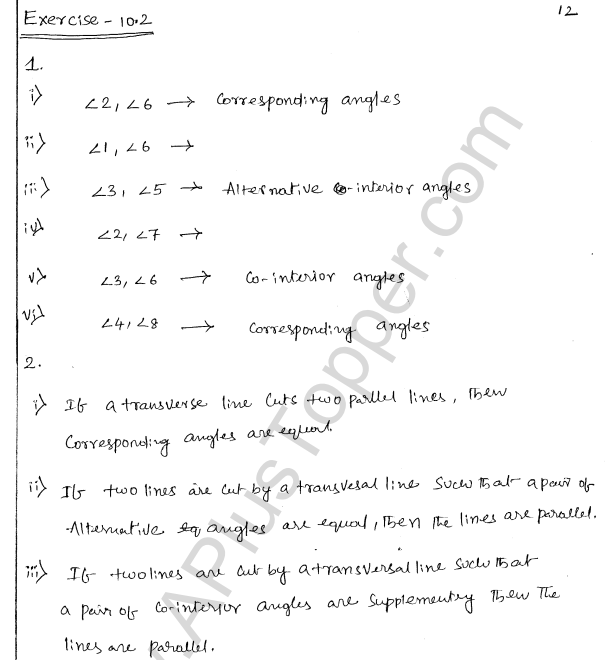 Exercise - 10.2
12
1.
i) ∠2, ∠6 → Corresponding angles
ii) ∠1, ∠6 →
iii) ∠3, ∠5 → Alternative interior angles
iv) ∠2, ∠7 →
v) ∠3, ∠6 → Co-interior angles
vi) ∠4, ∠8 → Corresponding angles
2.
i) If a transverse line cuts two parllel lines, then
Corresponding angles are equal.
ii) If two lines are cut by a transvesal line such that a pair of
Alternative angles are equal, then the lines are parallel.
iii) If two lines are cut by a transversal line such that
a pair of co-interior angles are supplementry then the
lines are parallel.
.APlusTopper.com